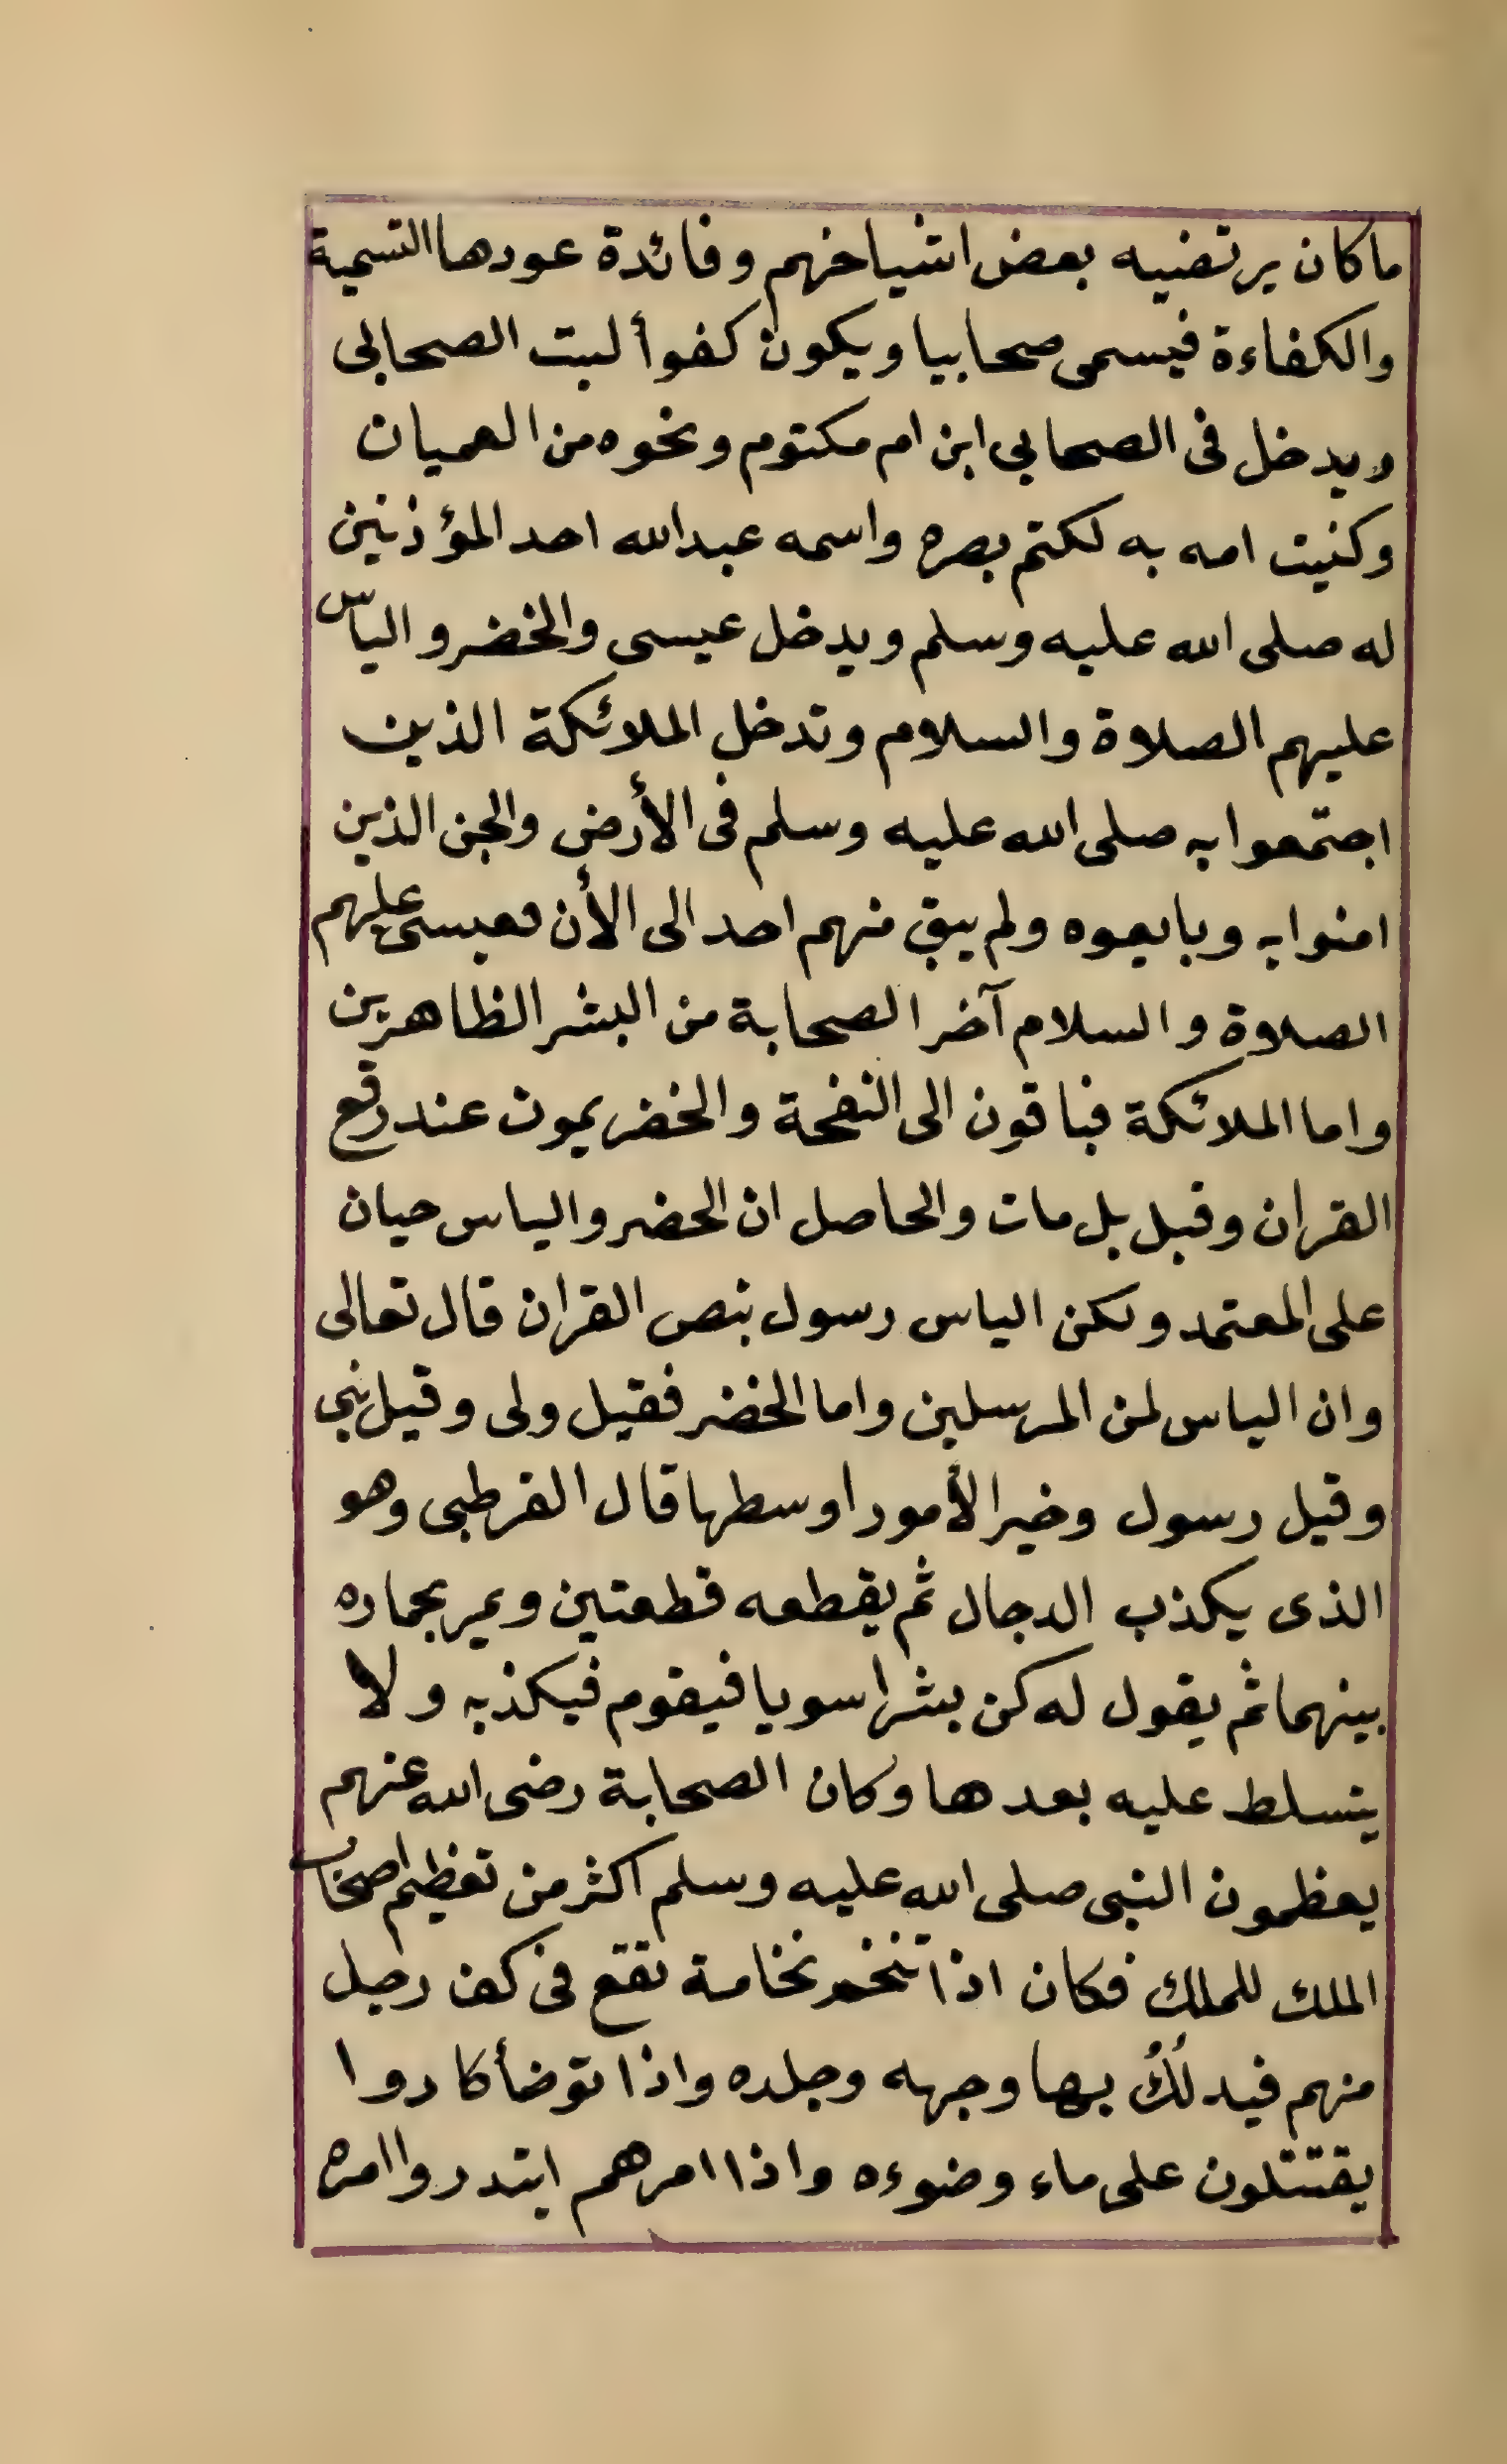 ما كان يرتضيه بعض اشياخهم وفائدة عودها التسمية
والكفاءة فيسمى صحابيا ويكون كفوأ لبنت الصحابى
ويدخل فى الصحابي ابن ام مكتوم ونحوه من العميان
وكنيت امه به لكتم بصره واسمه عبدالله احد المؤذنين
له صلى الله عليه وسلم ويدخل عيسى والخضر والياس
عليهم الصلاة والسلام وتدخل الملائكة الذين
اجتمعوا به صلى الله عليه وسلم فى الأرض والجن الذين
امنوا به وبايعوه ولم يبق منهم احد الى الأن فعيسى عليهم
الصلاة والسلام آخر الصحابة من البشر الظاهرين
واما الملائكة فباقون الى النفخة والخضر يموت عند رفع
القران وقيل بل مات والحاصل ان الخضر والياس حيان
على المعتمد ولكن الياس رسول بنص القران قال تعالى
وان الياس لمن المرسلين واما الخضر فقيل ولى وقيل نبي
وقيل رسول وخير الأمور اوسطها قال القرطبى وهو
الذى يكذب الدجال ثم يقطعه قطعتين ويمر بحماره
بينهما ثم يقول له كن بشرا سويا فيقوم فيكذبه ولا
يتسلط عليه بعدها وكان الصحابة رضى الله عنهم
يعظمون النبى صلى الله عليه وسلم اكثر من تعظيم اصحاب
الملك للملك فكان اذا تنخم نخامة تقع فى كف رجل
منهم فيدلك بها وجهه وجلده واذا توضأ كادوا
يقتتلون على ماء وضوءه واذا امرهم ابتدروا امره